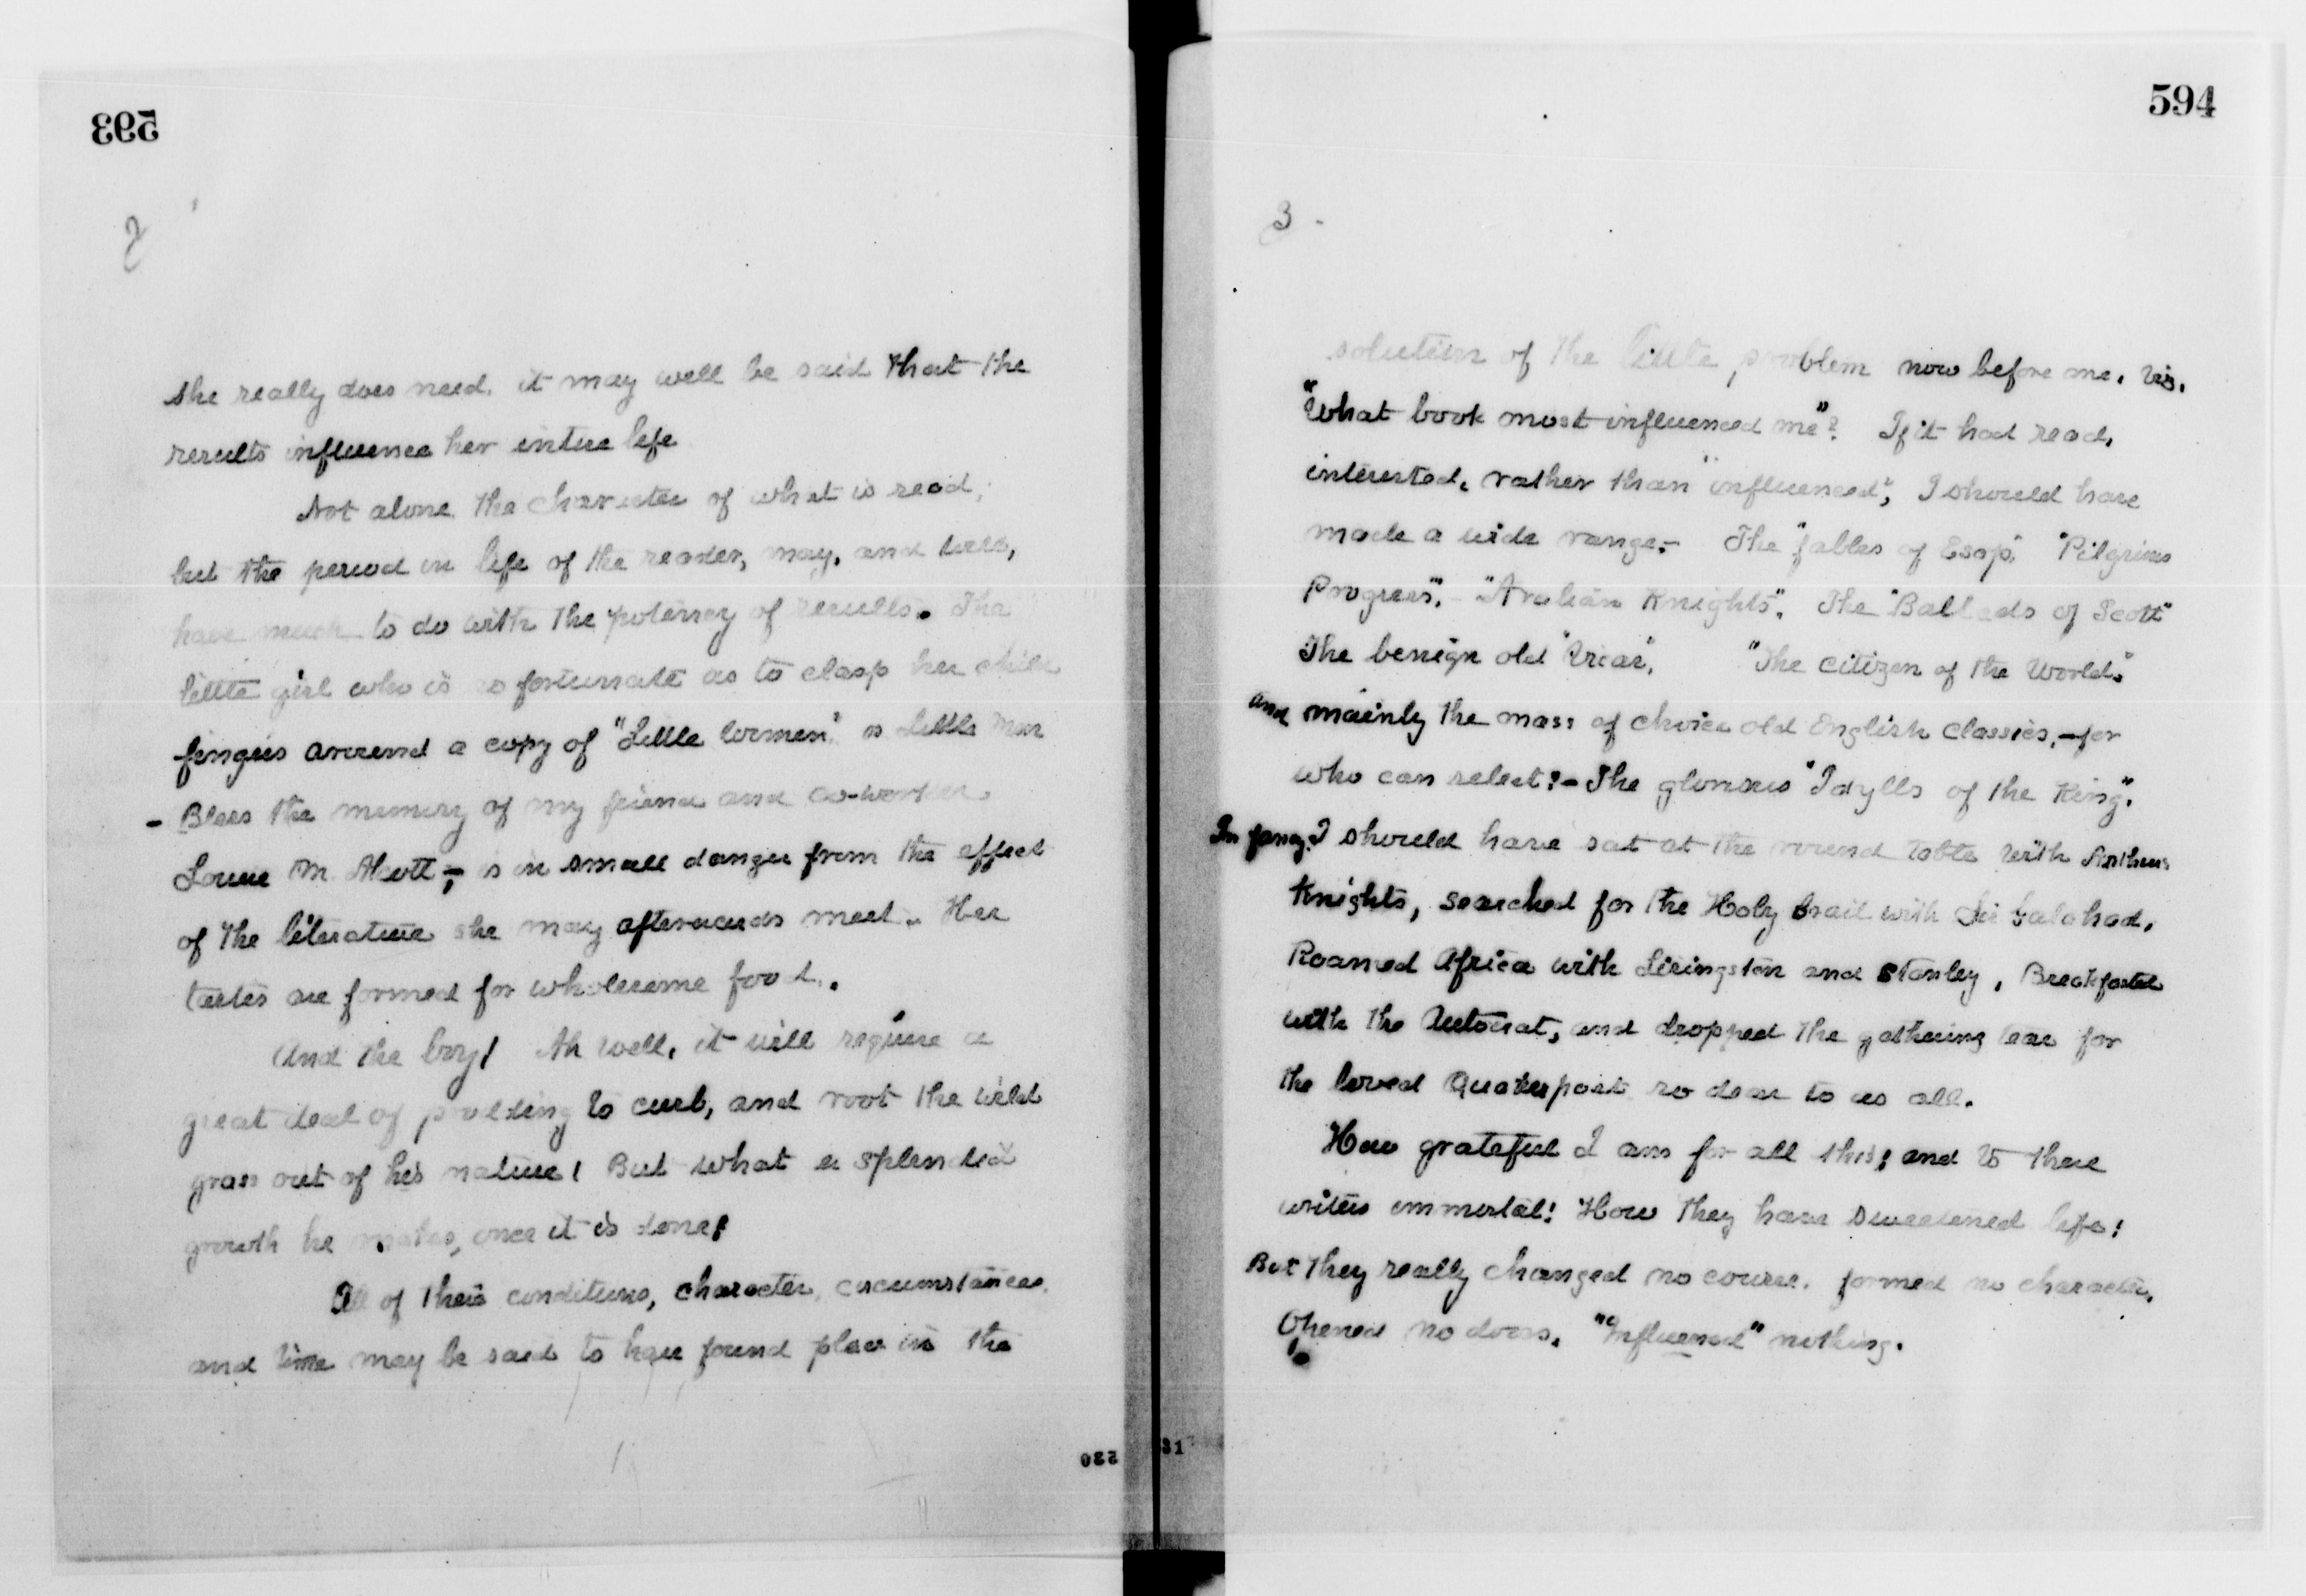 593
2
she really does need. it may well be said that the
results influence her entire life
Not alone the character of what is read,
but the period in life of the reader, may, and will,
have much to do with the potency of results. The
little girl who is so fortunate as to clasp her child
fingers around a copy of "Little Women" or Little Men
- Bless the memory of my friend and co-worker
Louise M. Alcott -, is in small danger from the effect
of the literature she may afterwards meet. Her
tastes are formed for wholesome food.
And the boy! Ah well, it will require a
great deal of prodding to curb, and root the wild
grass out of his nature! But what a splendid
growth he makes, once it is done!
All of these conditions, character, circumstances,
and time may be said to have found place in the
530
594
3 -
solution of the little problem now before me. viz.
"What book most influenced me"? If it had read,
interested, rather than "influenced", I should have
made a wide range,- The "fables of Esop", "Pilgrims
Progress". - "Arabian Knights". The "Ballads of Scott"
The benign old "Vicar", "The Citizen of the World."
and mainly the mass of choice old English classics,-for
who can select?- The glorious "Idylls of the King".
In fancy I should have sat at the round table with Arthurs
Knights, searched for the Holy Grail with Sir Galahad,
Roamed Africa with Livingston and Stanley, Breakfasted
with the Autocrat, and dropped the gathering tear for
the loved Quaker poet so dear to us all.
How grateful I am for all this; and to these
writers immortal! How they have sweetened life!
But they really changed no course, formed no character,
Opened no doors, "Influenced" nothing.
31